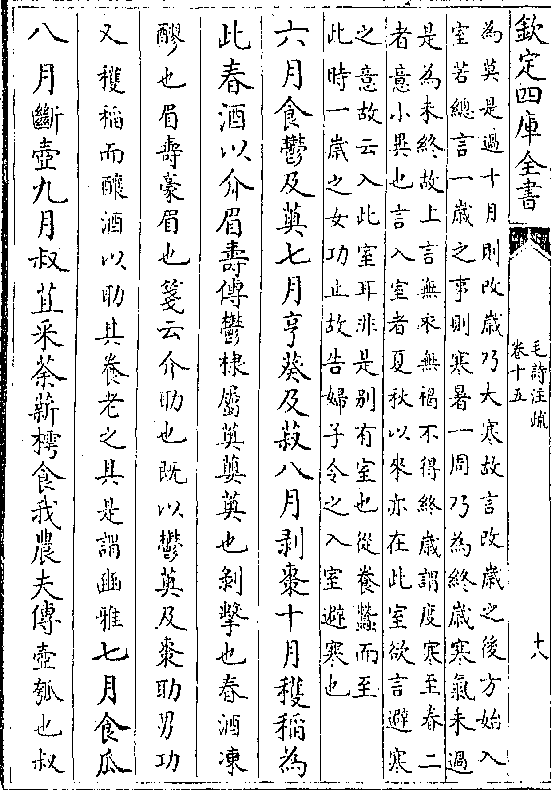 欽定四庫全書
毛詩注疏
卷十五
十八
為莫是過十月則改歲乃大寒故言改歲之後方始入
室若總言一歲之事則寒暑一周乃為終歲寒氣未過
是為未終故上言無衣無褐不得終歲謂度寒至春二
者意小異也言入室者夏秋以來亦在此室欲言避寒
之意故云入此室耳非是别有室也從養蠶而至
此時一歲之女功止故告婦子令之入室避寒也
六月食鬱及薁七月亨葵及菽八月剥棗十月穫稻為
此春酒以介眉壽傳鬱棣屬薁蘡薁也剝擊也春酒凍
醪也眉壽豪眉也箋云介助也既以鬱薁及棗助男功
又穫稻而釀酒以助其養老之具是謂豳雅七月食瓜
八月斷壺九月叔苴采荼薪樗食我農夫傳壺瓠也叔